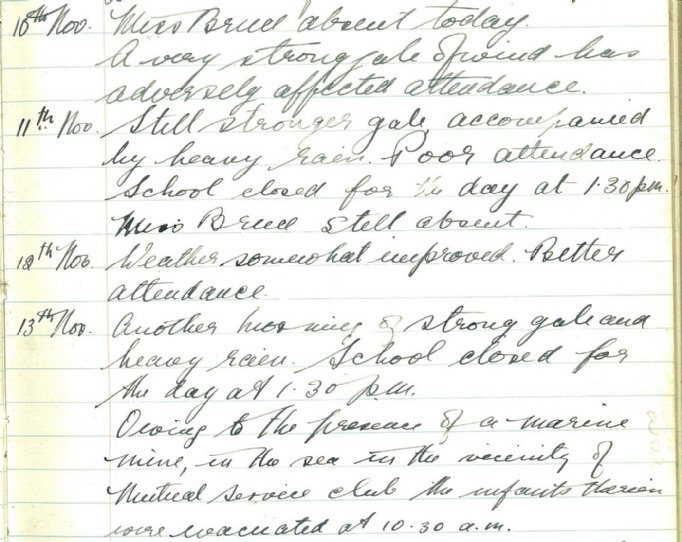 10th Nov. Miss Bruce absent today.
A very strong gale of wind has
adversely affected attendance.
11th Nov. Still stronger gale accompanied
by heavy rain. Poor attendance.
School closed for the day at 1.30 pm.
Miss Bruce still absent.
12th Nov. Weather somewhat improved. Better
attendance.
13th Nov. Another morning of strong gale and
heavy rain. School closed for
the day at 1.30 p.m.
Owing to the presence of a marine
mine, in the sea in the vicinity of
Mutual Service Club the infants therein
were evacuated at 10.30 a.m.